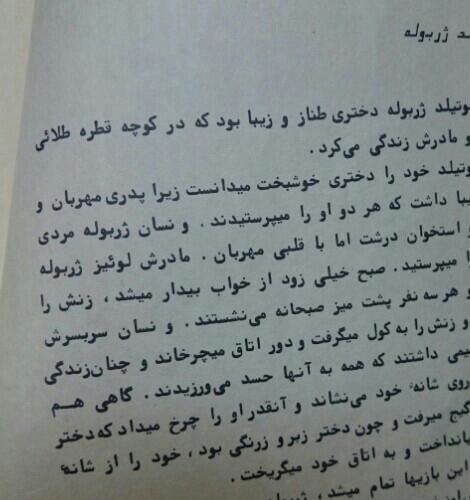 ژربوله
وتیلد ژربوله دختری طناز و زیبا بود که در کوچه قطره طلائی
و مادرش زندگی می‌کرد .
وتیلد خود را دختری خوشبخت میدانست زیرا پدری مهربان و
یبا داشت که هر دو او را میپرستیدند . و نسان ژربوله مردی
و استخوان درشت اما با قلبی مهربان . مادرش لوئیز ژربوله
را میپرستید . صبح خیلی زود از خواب بیدار میشد ، زنش را
و هر سه نفر پشت میز صبحانه می‌نشستند . و نسان سربسرش
و زنش را به کول میگرفت و دور اتاق میچرخاند و چنان زندگی
یمی داشتند که همه به آنها حسد می‌ورزیدند . گاهی هم
روی شانهٔ خود می‌نشاند و آنقدر او را چرخ میداد که دختر
گیج میرفت و چون دختر زبر و زرنگی بود ، خود را از شانهٔ
یانداخت و به اتاق خود میگریخت .
این بازیها تمام میشد ،